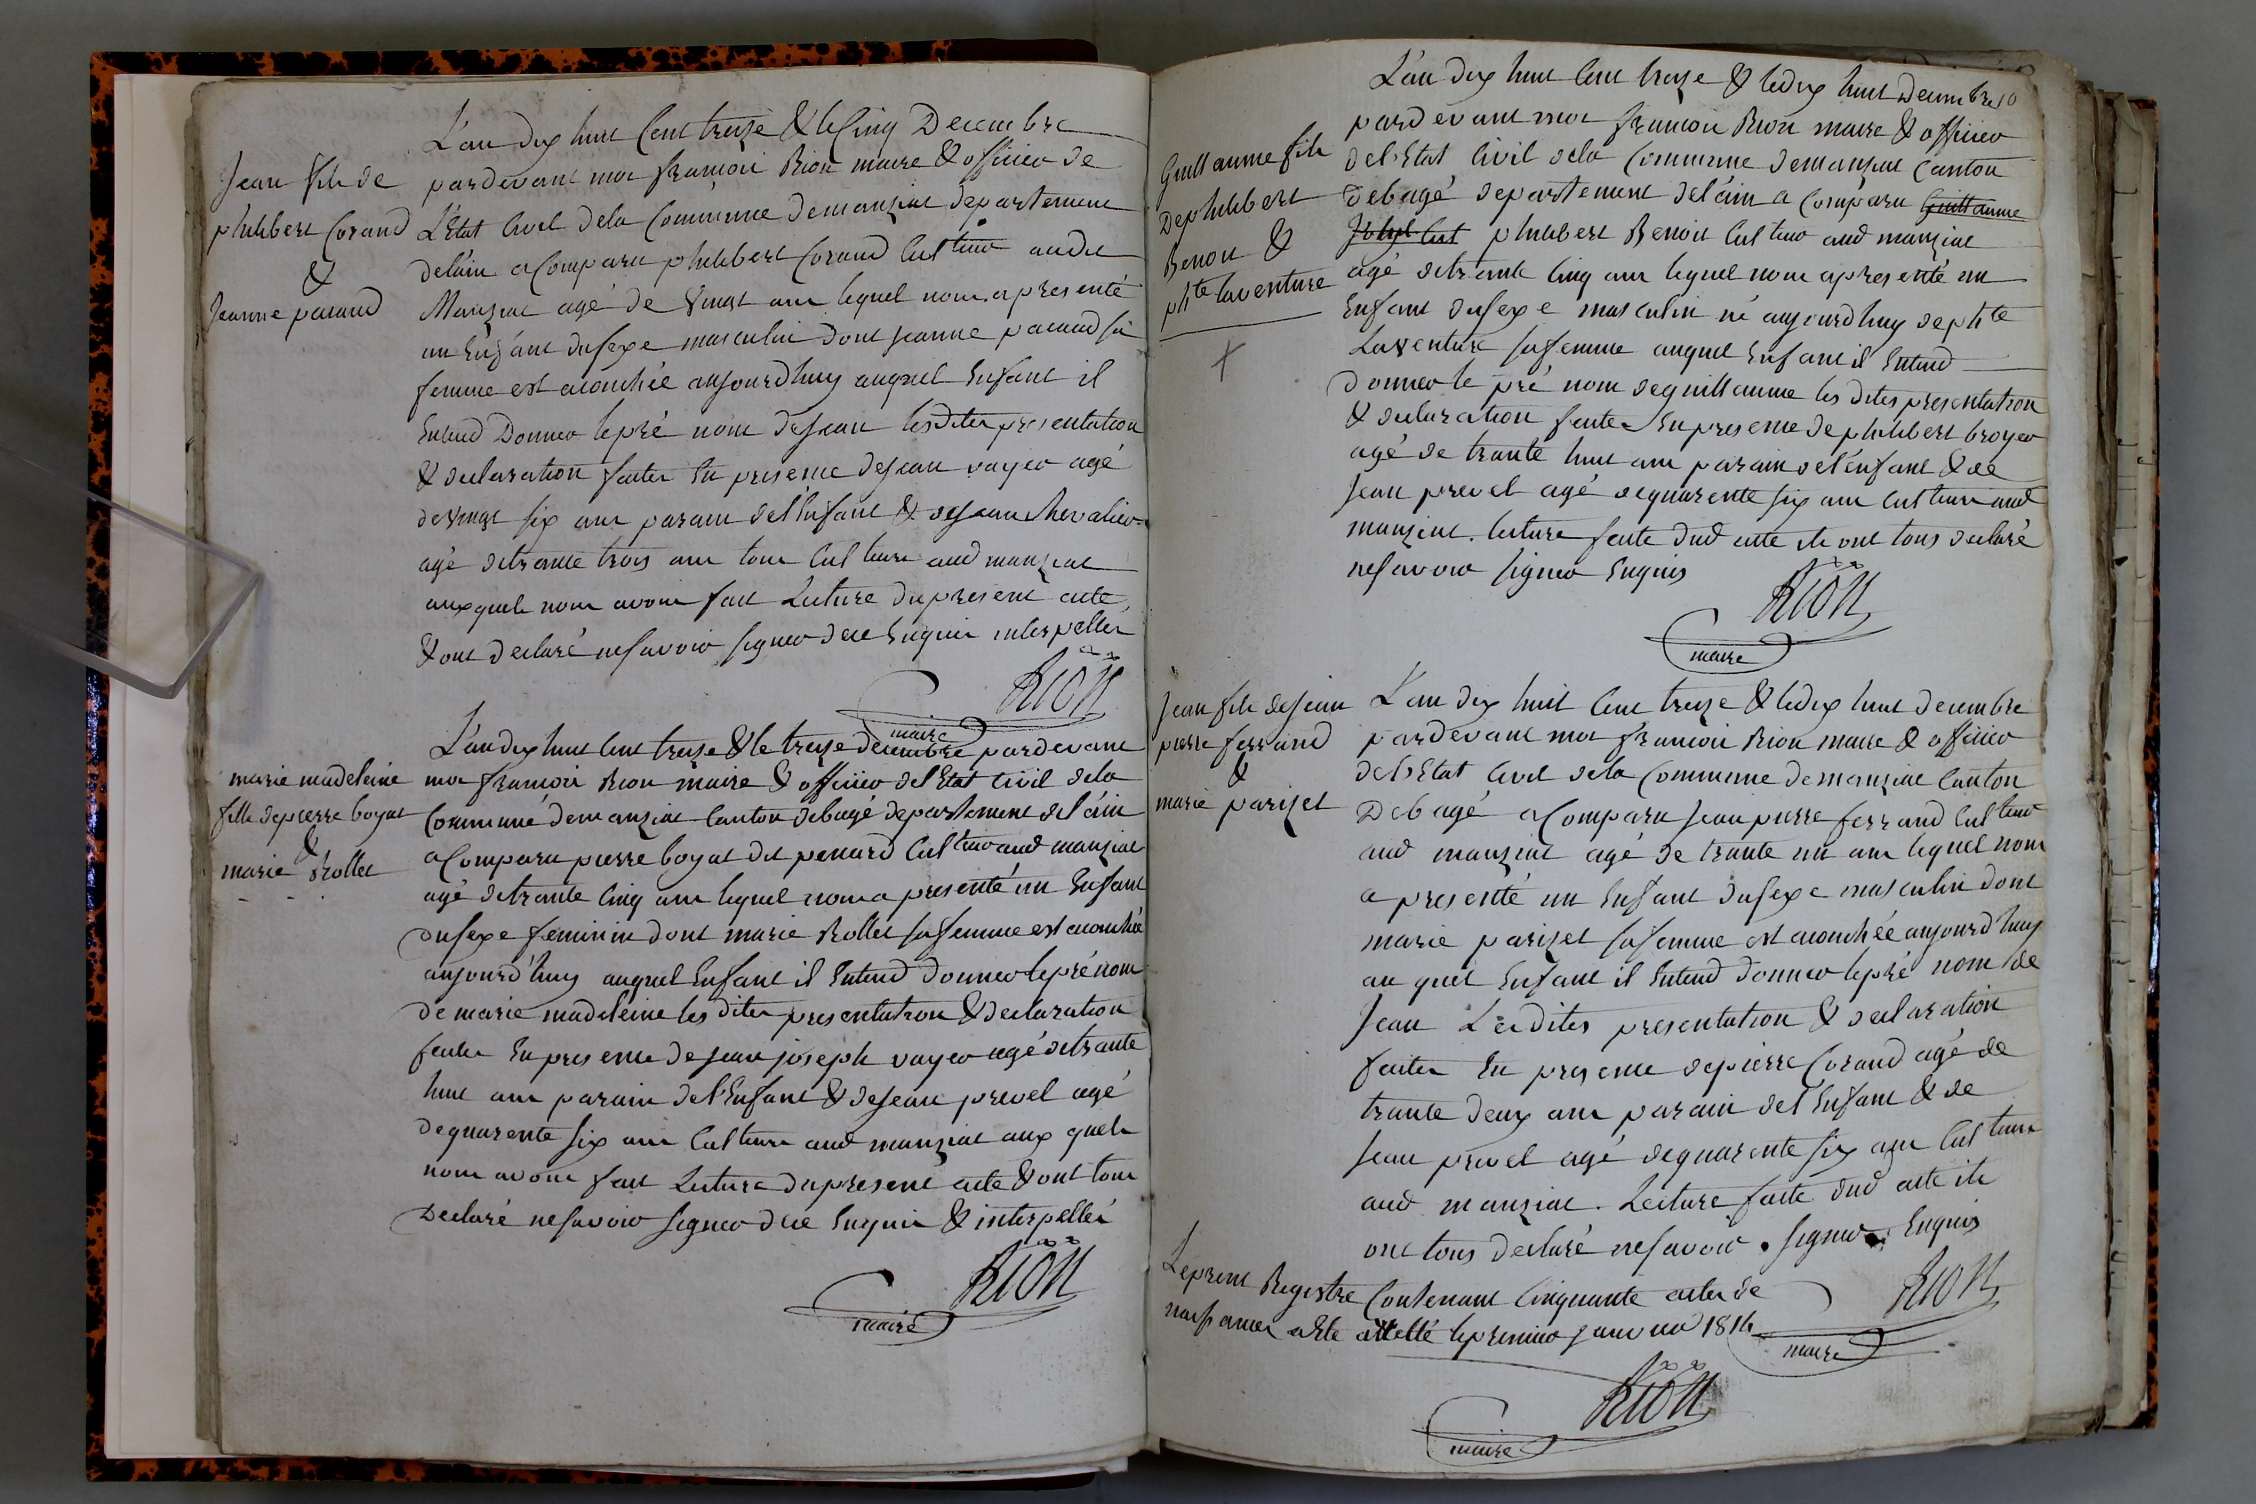 L'an dix huit Cent treize & le Cinq Decembre
Jean fils de
philibert Corand
&
Jeanne pacaud
pardevant moi francois Rion maire & officier de
L'Etat Civil dela Commune demanziat departement
delain a Comparu philibert Corand Cultivr audit
Manziat agé de vingt ans lequel nous a presenté
un Enfant dusexe masculin dont Jeanne pacaud sa
femme est acouchée aujourdhuy auquel Enfant il
Entend Donner lepré nom deJean lesdites presentation
& declaration faites En presence deJean vayer agé
devingt six ans parain del'Enfant & deJean Chevalier
agé detrante trois ans tous Cultivrs aud manziat
auxquels nous avons fait Lecture dupresent acte
& ont declaré nesavoir signer dece Enquis interpellés
Rion
maire
L'an dix huit Cent treize & le treize decembre pardevant
marie madeleine
fille depierre boyat
&
marie Rollet
moi francois Rion maire & officier del'Etat Civil dela
Commune demanziat Canton debagé departement del'ain
a Comparu pierre boyat dit penard Cultivr aud manziat
agé detrante Cinq ans lequel nous a presenté un Enfant
dusexe feminin dont marie Rollet safemme est acouchée
aujourd'huy auquel Enfant il Entend donner leprénom
de marie madeleine les dites presentation & declaration
faites En presence de Jean joseph vayer agé detrante
huit ans parain del'Enfant & deJean prevel agé
dequarente six ans Cultivrs aud manziat aux quels
nous avons fait Lecture dupresent acte & ont tous
Declaré nesavoir signer dece Enquis & interpellés
Rion
maire
L'an dix huit Cent treize & ledix huit Decembre
Guillaume fils
Dephilibert
Benoit &
phte laventure
pardevant moi francois Rion maire & officier
del'Etat Civil dela Commune demanziat Canton
debagé departement del'ain a Comparu Guillaume
philibert Benoit Cultivr aud manziat
agé detrante Cinq ans lequel nous apresenté un
Enfant dusexe masculin né aujourdhuy dephte
Laventure safemme auquel Enfant il Entend
donner le pré nom deguillaume les dites presentation
& declaration faites En presence dephilibert broyer
agé de trante huit ans parain del'enfant & de
Jean prevel agé dequarente six ans Cultivrs aud
manziat. lecture faite dud acte ils ont tous declaré
nesavoir signer Enquis
Rion
maire
Jean fils deJean
pierre ferrand
&
marie parizet
L'an dix huit Cent treize & ledix huit decembre
pardevant moi francois Rion maire & officier
del'Etat Civil dela Commune demanziat Canton
Debagé a Comparu Jean pierre ferrand Cultivr
aud manziat agé de trante un ans lequel nous
a presenté un Enfant dusexe masculin dont
marie parizet safemme est acouchée aujourd'huy
au quel Enfant il Entend donner lepré nom de
Jean Les dites presentation & declaration
faites En presence depierre Corand agé de
trante deux ans parain del'Enfant & de
Jean prevel agé dequarente six ans Cultivrs
aud manziat. Lecture faite dud acte ils
ont tous declaré nesavoir signer Enquis
Rion
maire
Leprent Registre Contenant Cinquante actes de
naissances aété arretté lepremier Janvier 1814
Rion
maire